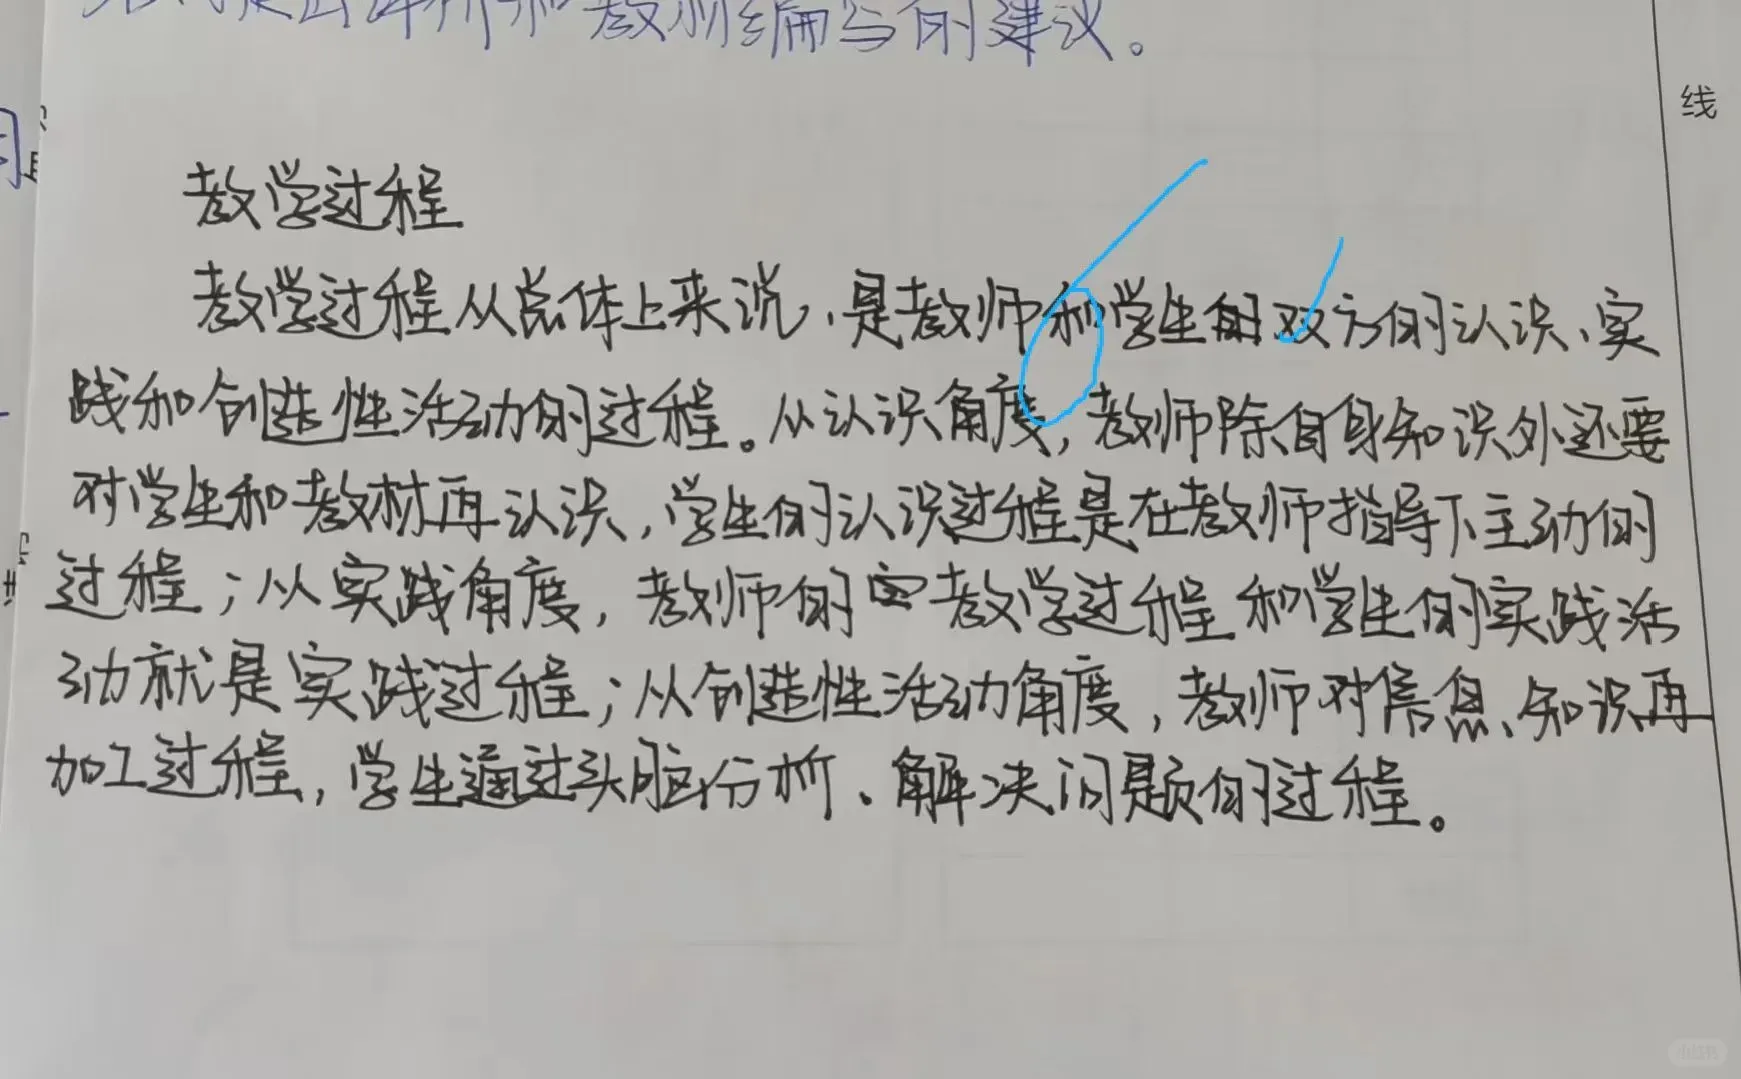 和教材编写的建议。
线
教学过程
教学过程从总体上来说,是教师和学生的双方的认识、实
践和创造性活动的过程。从认识角度,教师除自身知识外还要
对学生和教材再认识,学生的认识过程是在教师指导下主动的
过程;从实践角度,教师的教学过程和学生的实践活
动就是实践过程;从创造性活动角度,教师对信息、知识再
加工过程,学生通过头脑分析、解决问题的过程。
小红书